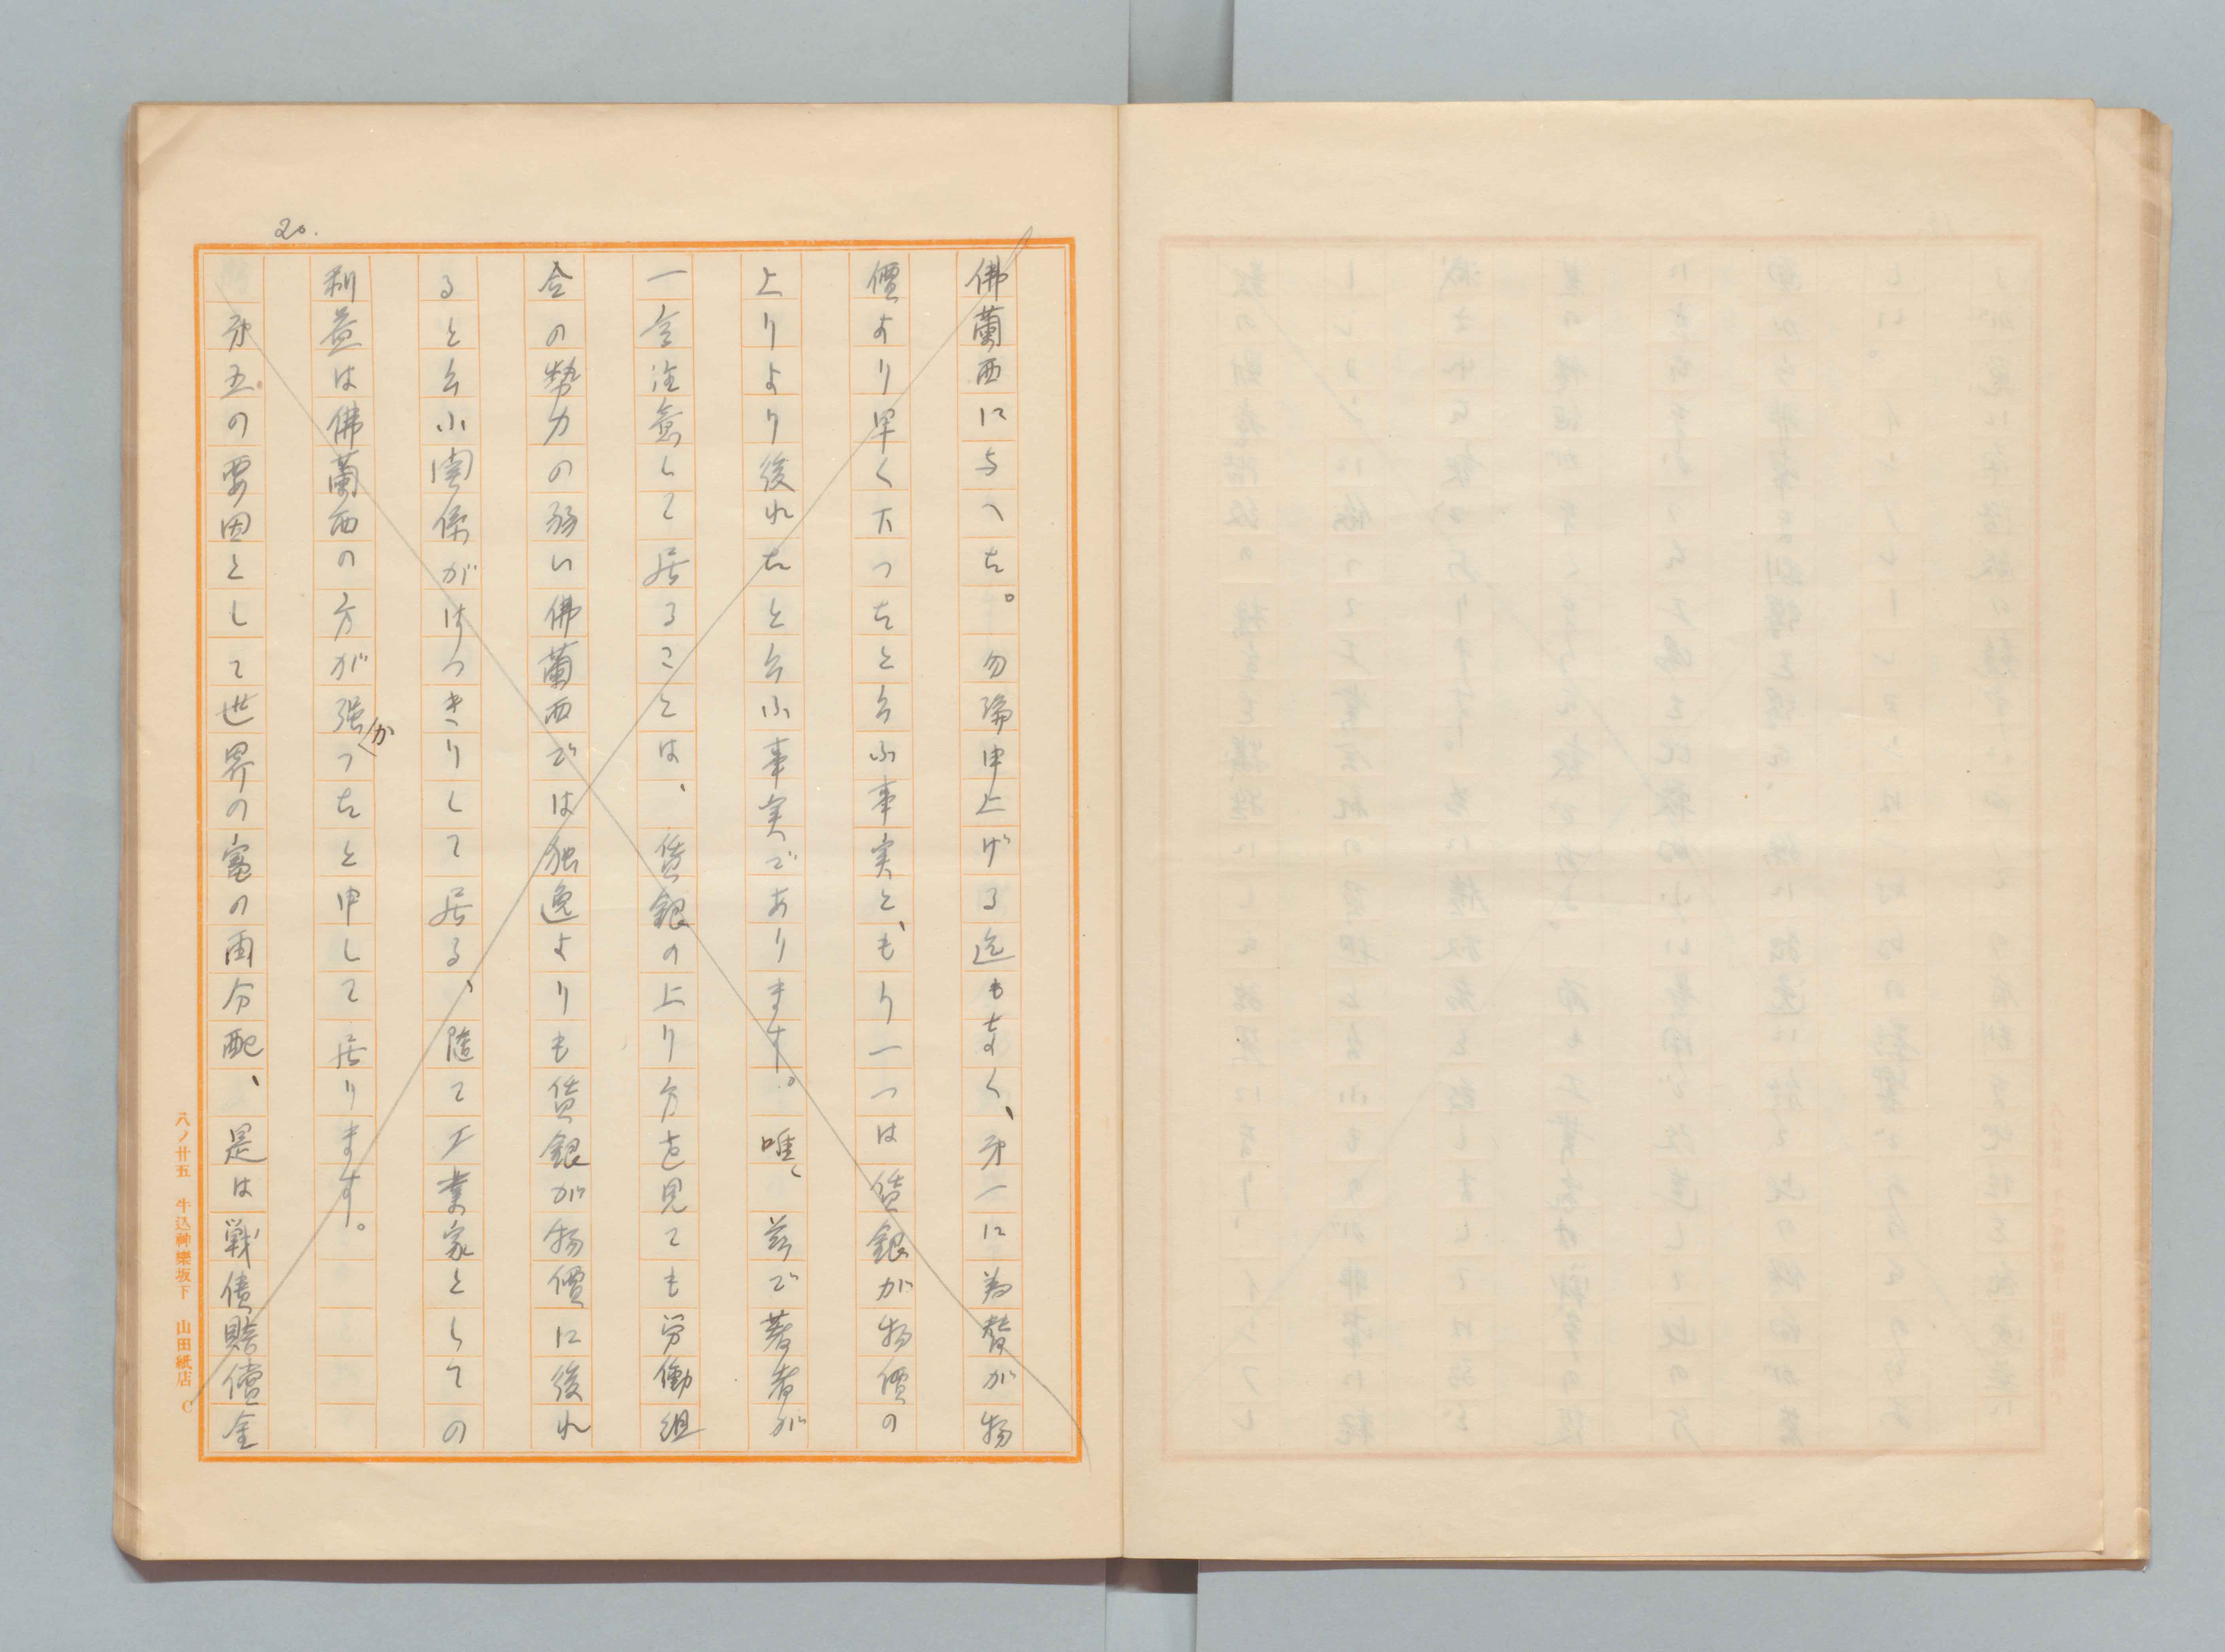 20.
佛蘭西に与へた。勿論申上げる迄もなく、第一に為替が物
價より早く下つたと云ふ事実と、もう一つは賃銀が物價の
上りより後れたと云ふ事実であります。唯、茲で著者が
一令注意して居ることは、賃銀の上り方を見ても労働組
合の勢力の弱い佛蘭西では独逸よりも賃銀が物價に後れ
ると云ふ関係がはつきりして居る、隨て工業家としての
利益は佛蘭西の方が强かつたと申して居ります。
第五の要因として世界の富の再分配、是は戦債賠償金
八ノ廿五 牛込神樂坂下 山田紙店 C